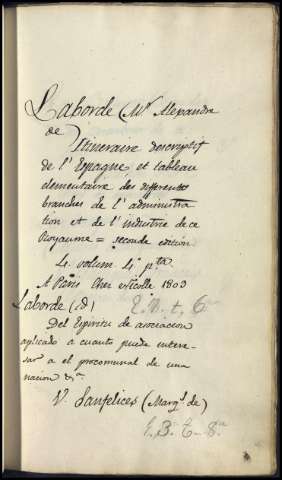 Laborde (Mr Alexandre
de
Itineraire descriptif
de l'Espagne et tableau
elementaire des differentes
branches de l'administra
tion et de l'industrie de ce
Royaume = seconde edition
4 volum. 4º pta
A Paris Chez Nicolle 1809
Laborde (id)
Del Espiritu de asociacion
aplicado a cuanto puede intere-
sar a el procomunal de una
nacion &ª
V. Sanfelices (Marqs de)